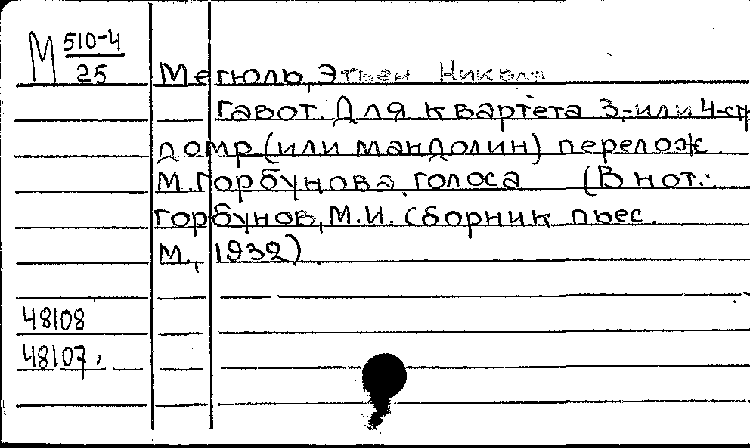 М 510-4
25
Мегюль, Этьен Никола
Гавот. Для квартета 3,-или 4-ст
домр (или мандолин) перелож.
М. Горбунова. Голоса (В нот.:
Горбунов, М.И. Сборник пьес.
М., 1932)
48108
48107.